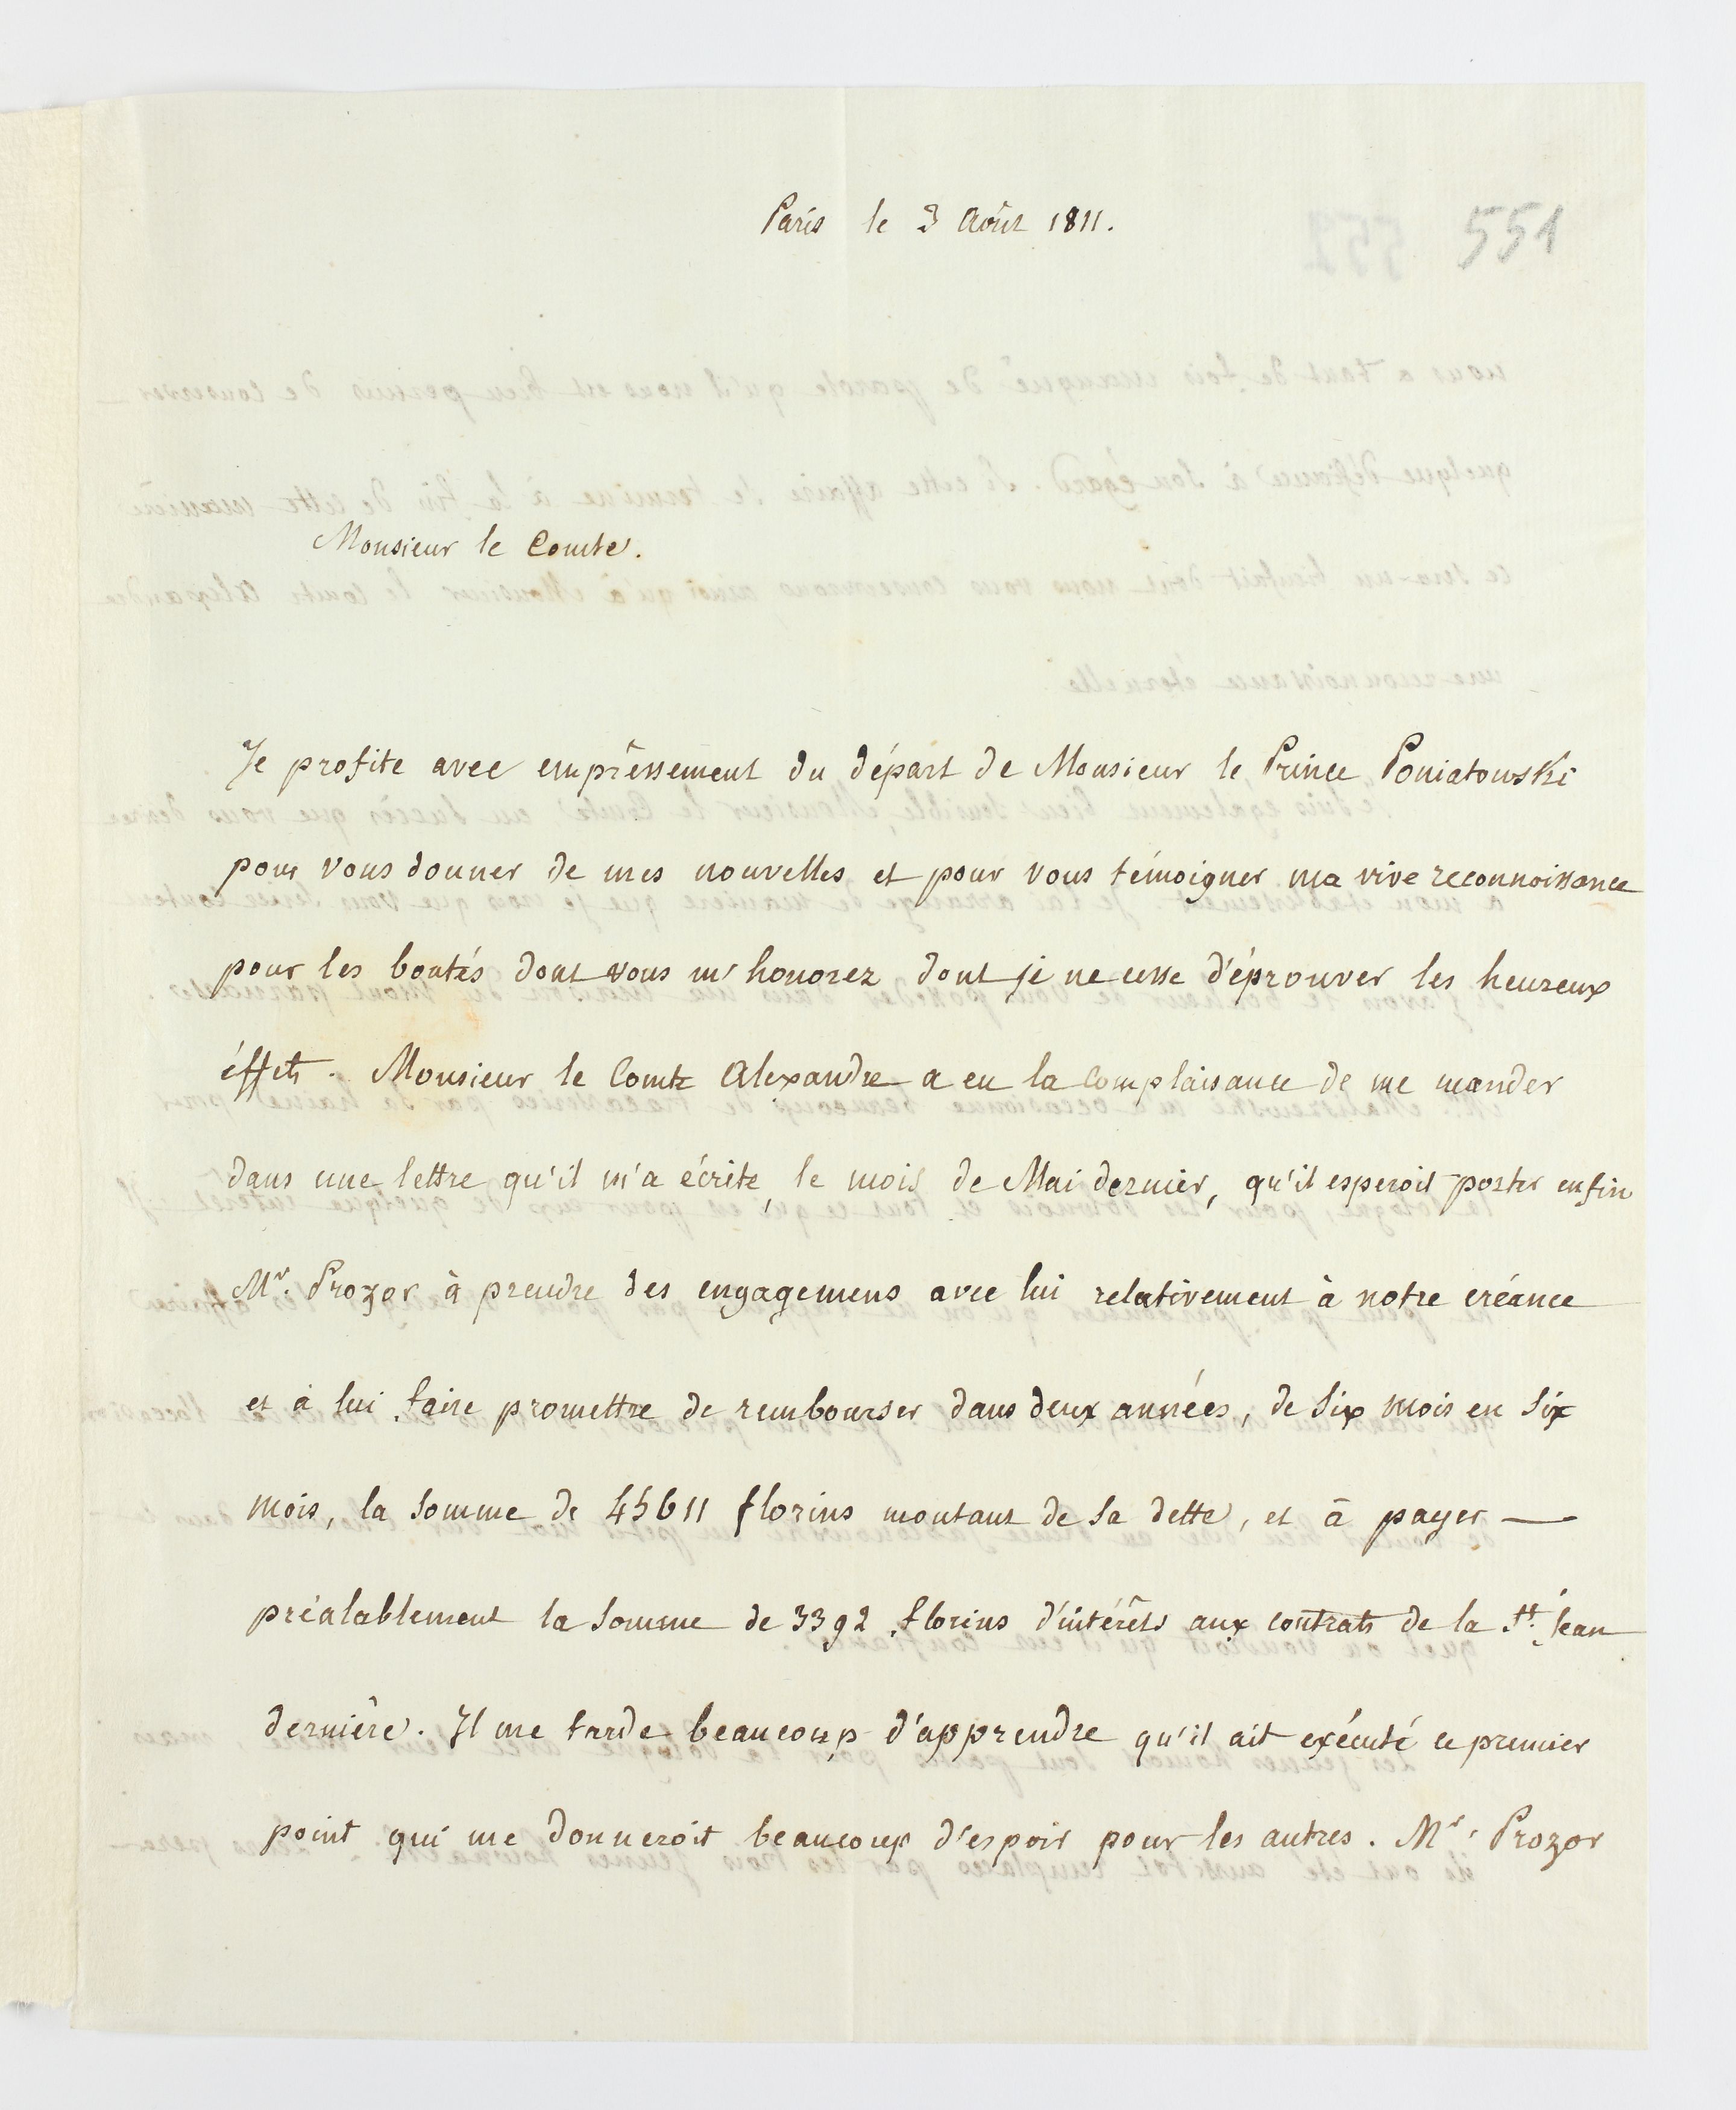 Paris le 3 Août 1811.
551
Monsieur le Comte.
Je profite avec emprêssement du départ de Monsieur le Prince Poniatowski
pour vous donner de mes nouvelles et pour vous témoigner ma vive reconnoissance
pour les bontés dont vous m'honorez dont je ne cesse d'éprouver les heureux
éffets. Monsieur le Comte Alexandre a eu la complaisance de me mander
dans une lettre qu'il m'a écrite, le mois de Mai dernier, qu'il esperoit porter enfin
Mr. Prozor à prendre des engagemens avec lui relativement à notre créance
et à lui faire promettre de rembourser dans deux années, de six mois en six
mois, la somme de 45611 florins montant de sa dette, et à payer —
préalablement la somme de 3392 florins d'intérêts aux contrats de la St. Jean
dernière. Il me tarde beaucoup d'apprendre qu'il ait exécuté ce premier
point qui me donneroit beaucoup d'espoir pour les autres. Mr. Prozor